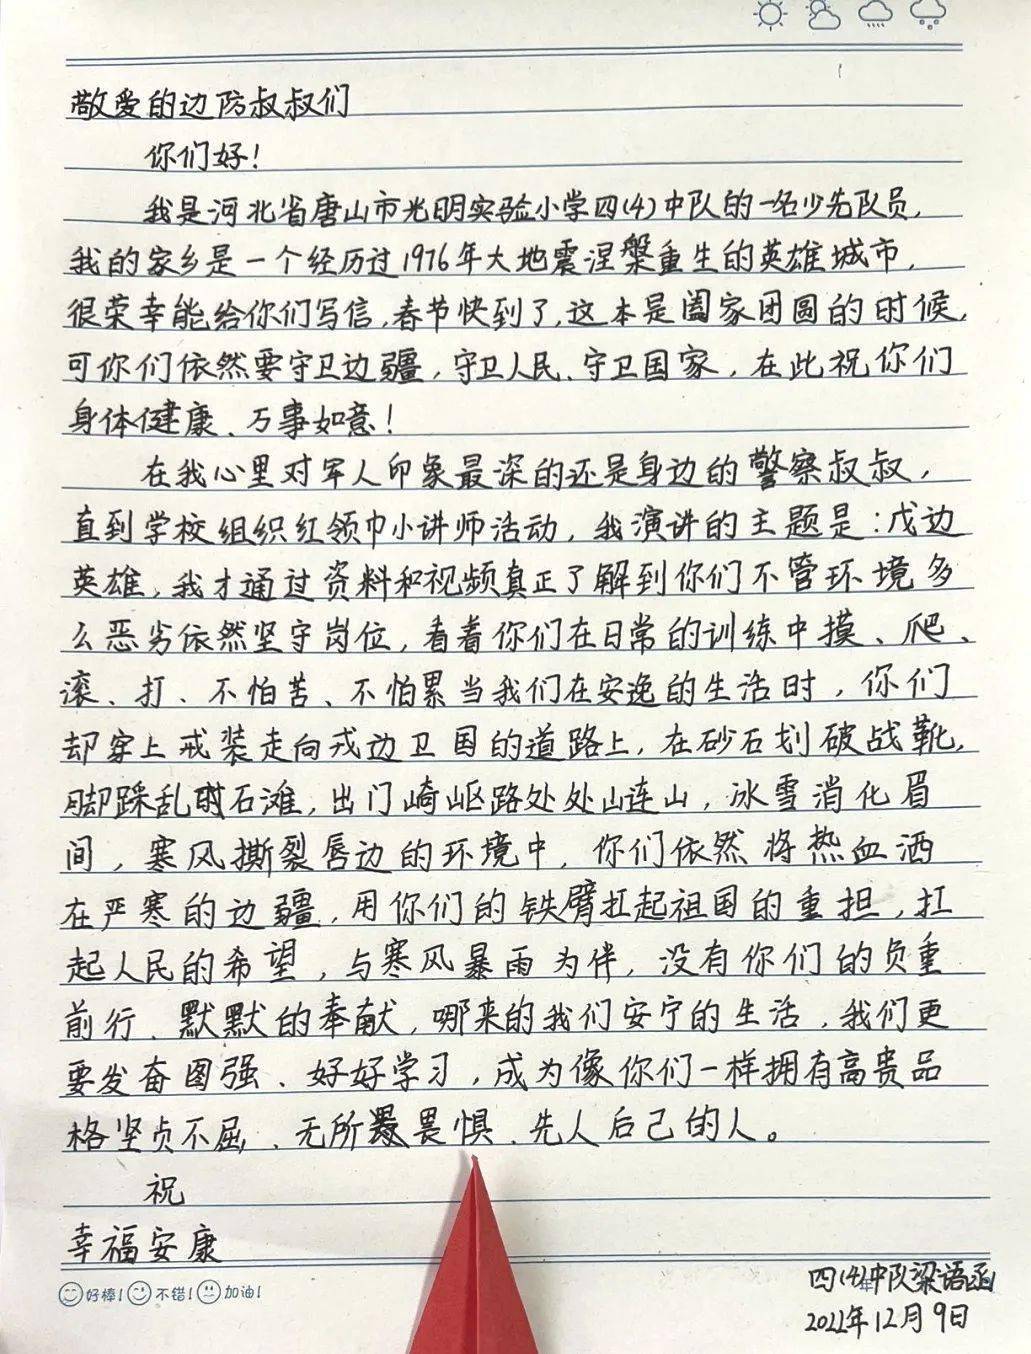 敬爱的边防叔叔们
你们好！
我是河北省唐山市光明实验小学四(4)中队的一名少先队员，
我的家乡是一个经历过1976年大地震涅槃重生的英雄城市，
很荣幸能给你们写信，春节快到了，这本是阖家团圆的时候，
可你们依然要守卫边疆，守卫人民、守卫国家，在此祝你们
身体健康、万事如意！
在我心里对军人印象最深的还是身边的警察叔叔，
直到学校组织红领巾小讲师活动，我演讲的主题是：戍边
英雄，我才通过资料和视频真正了解到你们不管环境多
么恶劣依然坚守岗位，看着你们在日常的训练中摸、爬、
滚、打、不怕苦、不怕累当我们在安逸的生活时，你们
却穿上戎装走向戎边卫国的道路上，在砂石划破战靴，
脚踩乱石滩，出门崎岖路处处山连山，冰雪消化眉
间，寒风撕裂唇边的环境中，你们依然将热血洒
在严寒的边疆，用你们的铁臂扛起祖国的重担，扛
起人民的希望，与寒风暴雨为伴，没有你们的负重
前行、默默的奉献，哪来的我们安宁的生活，我们更
要发奋图强、好好学习，成为像你们一样拥有高贵品
格坚贞不屈、无所畏惧、先人后己的人。
祝
幸福安康
四(4)中队梁语函
2022年12月9日
好棒！不错！加油！